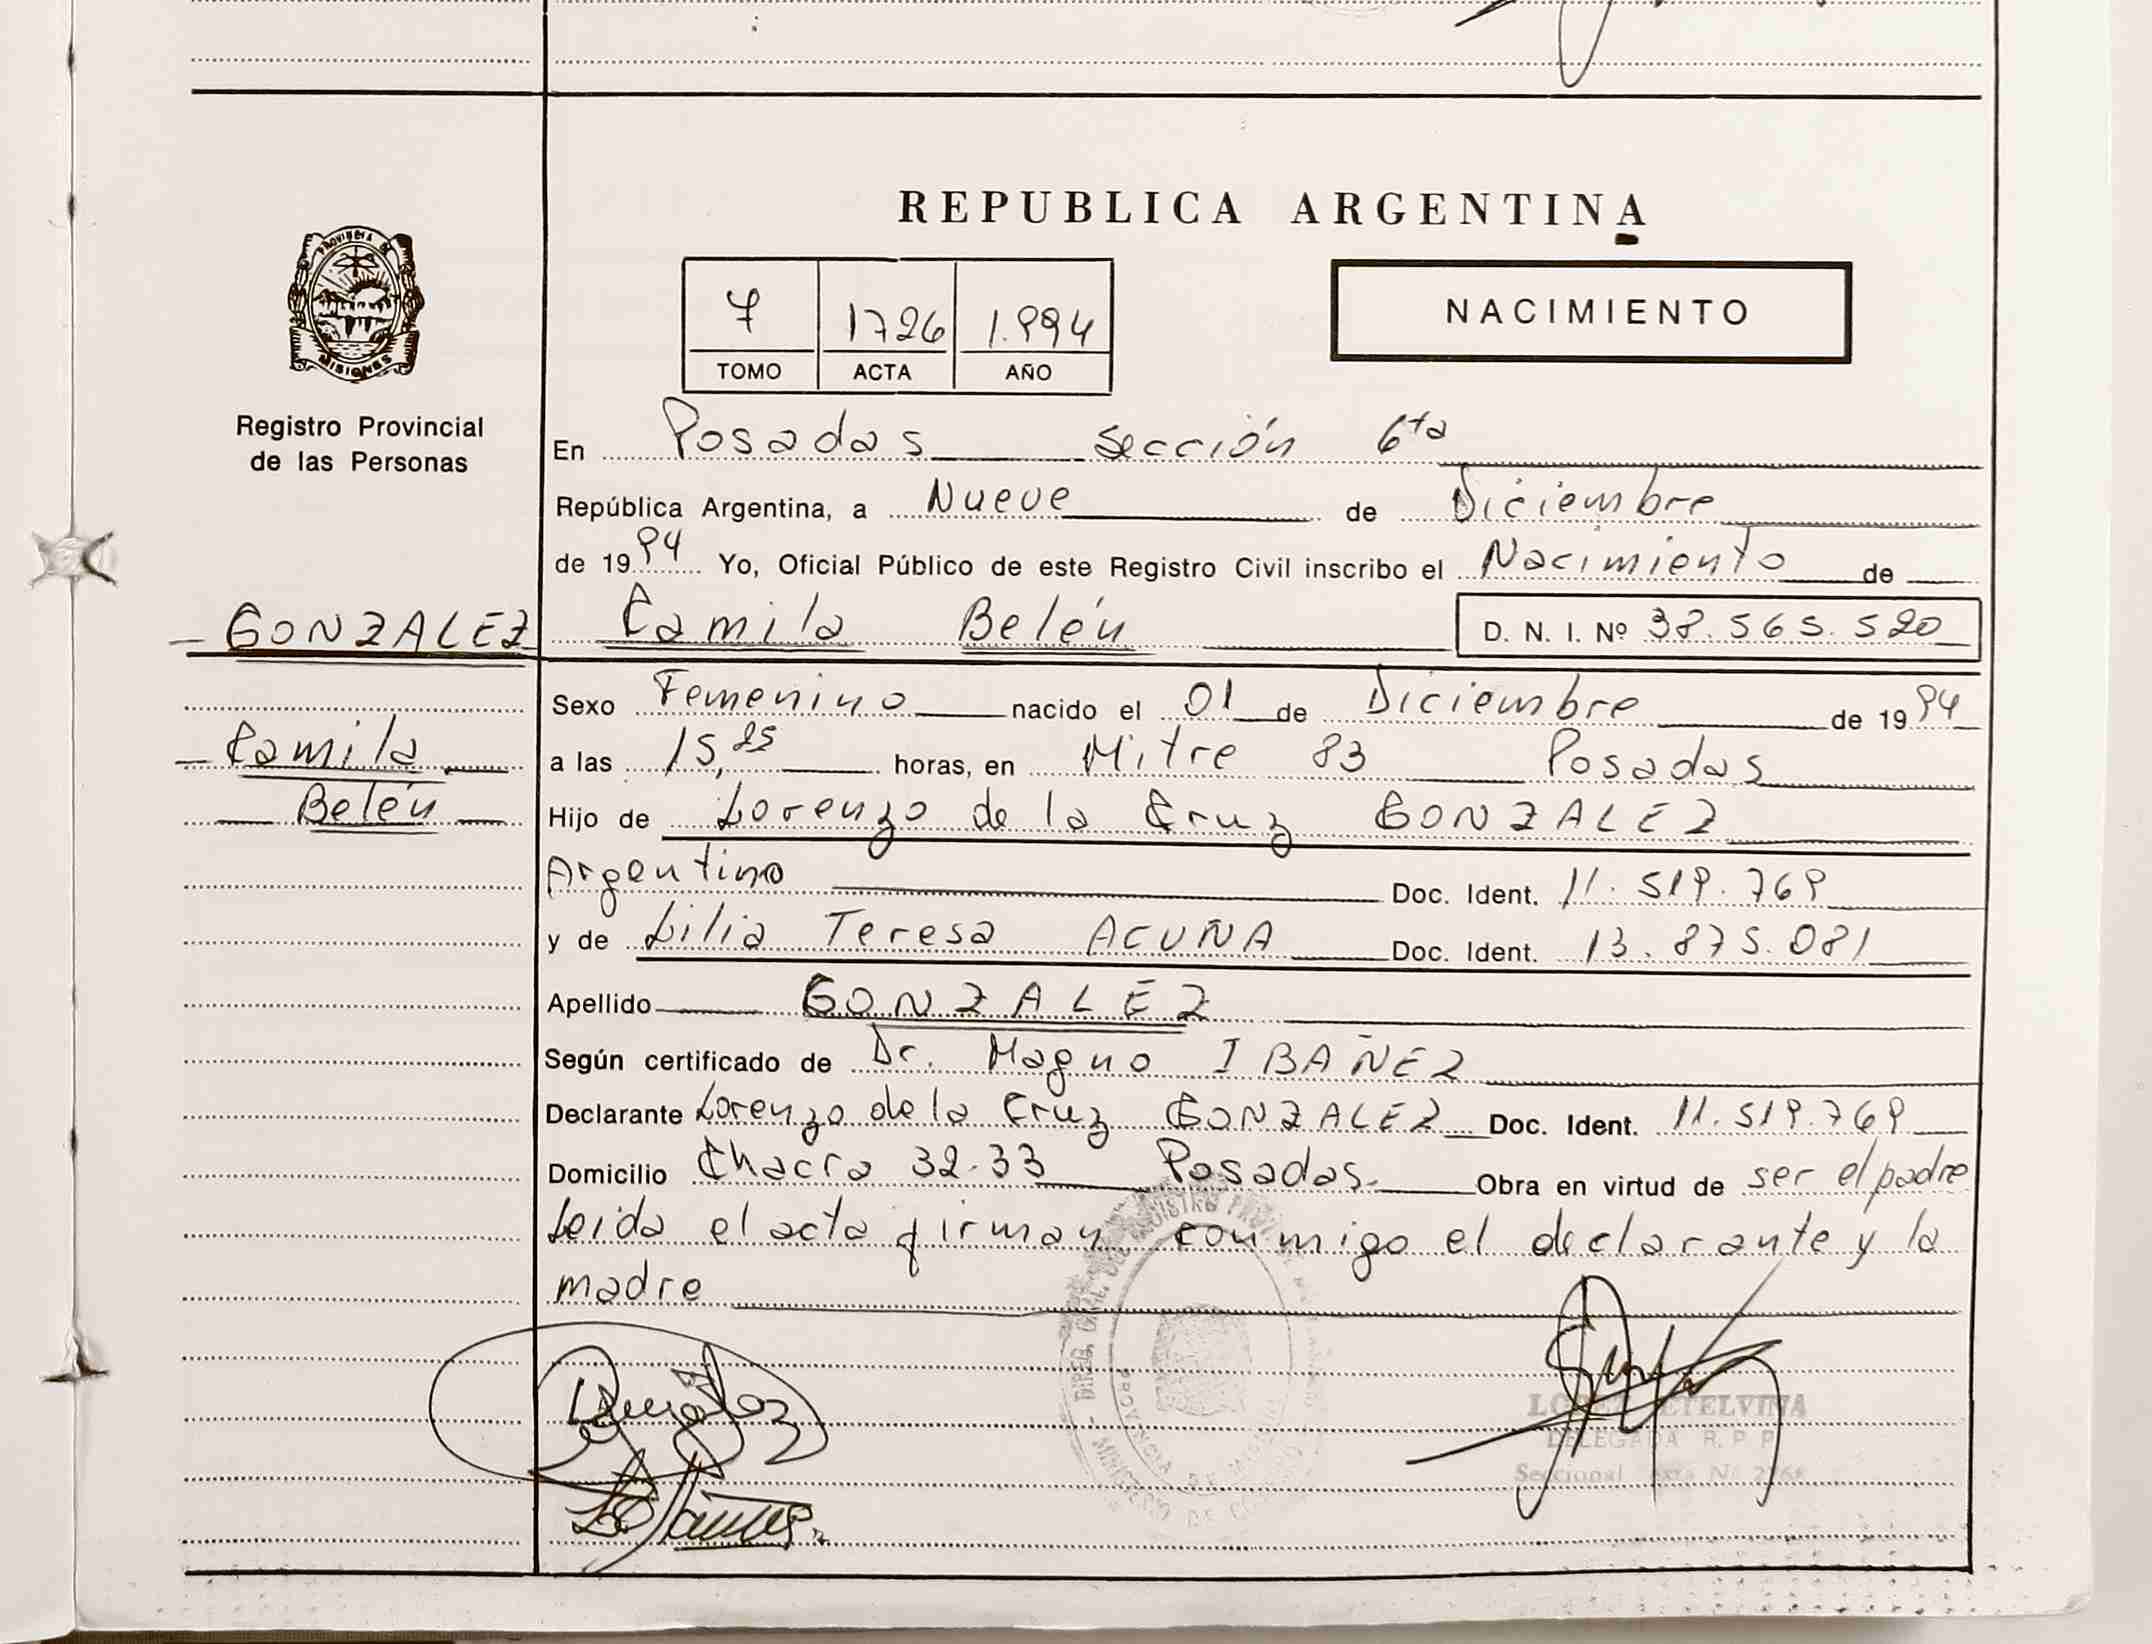 REPUBLICA ARGENTINA
PROVINCIA DE
MISIONES
Registro Provincial
de las Personas
7 1726 1.994
TOMO ACTA AÑO
NACIMIENTO
En Posadas sección 6ta
República Argentina, a Nueve de Diciembre
de 1994 Yo, Oficial Público de este Registro Civil inscribo el Nacimiento de
GONZALEZ Camila Belén D. N. I. Nº 38.565.520
Sexo Femenino nacido el 01 de Diciembre de 1994
Camila a las 15,25 horas, en Mitre 83 Posadas
Belén Hijo de Lorenzo de la Cruz GONZALEZ
Argentino Doc. Ident. 11.519.769
y de Lilia Teresa ACUÑA Doc. Ident. 13.875.081
Apellido GONZALEZ
Según certificado de Dr. Magno IBAÑEZ
Declarante Lorenzo de la Cruz GONZALEZ Doc. Ident. 11.519.769
Domicilio Chacra 32-33 Posadas. Obra en virtud de ser el padre
Leida el acta firman conmigo el declarante y la
madre
DELEGADA R. P. P.
Seccional